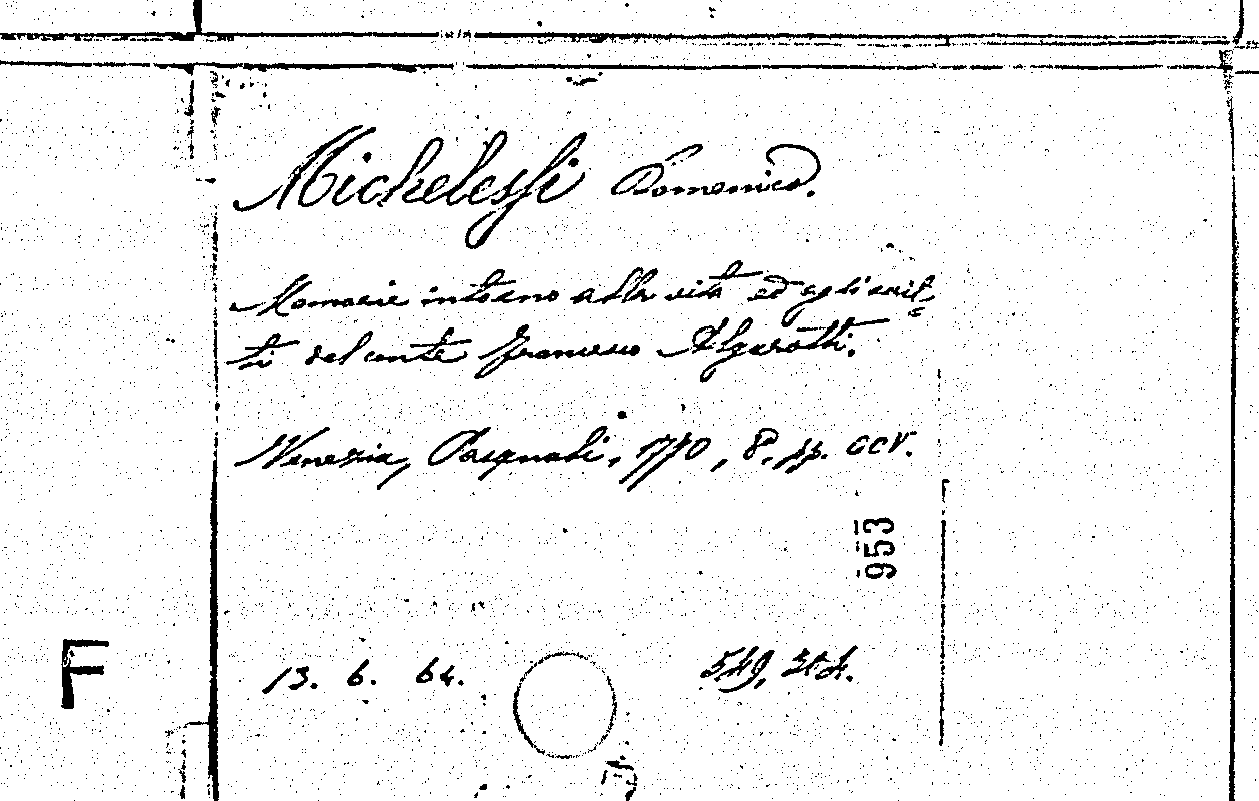 Michelessi Domenico.
Memorie intorno alla vita ed agli scrit=
ti del conte Francesco Algarotti.
Venezia, Pasquali, 1770, 8. pp. CCV.
953
F
13. 6. 64.